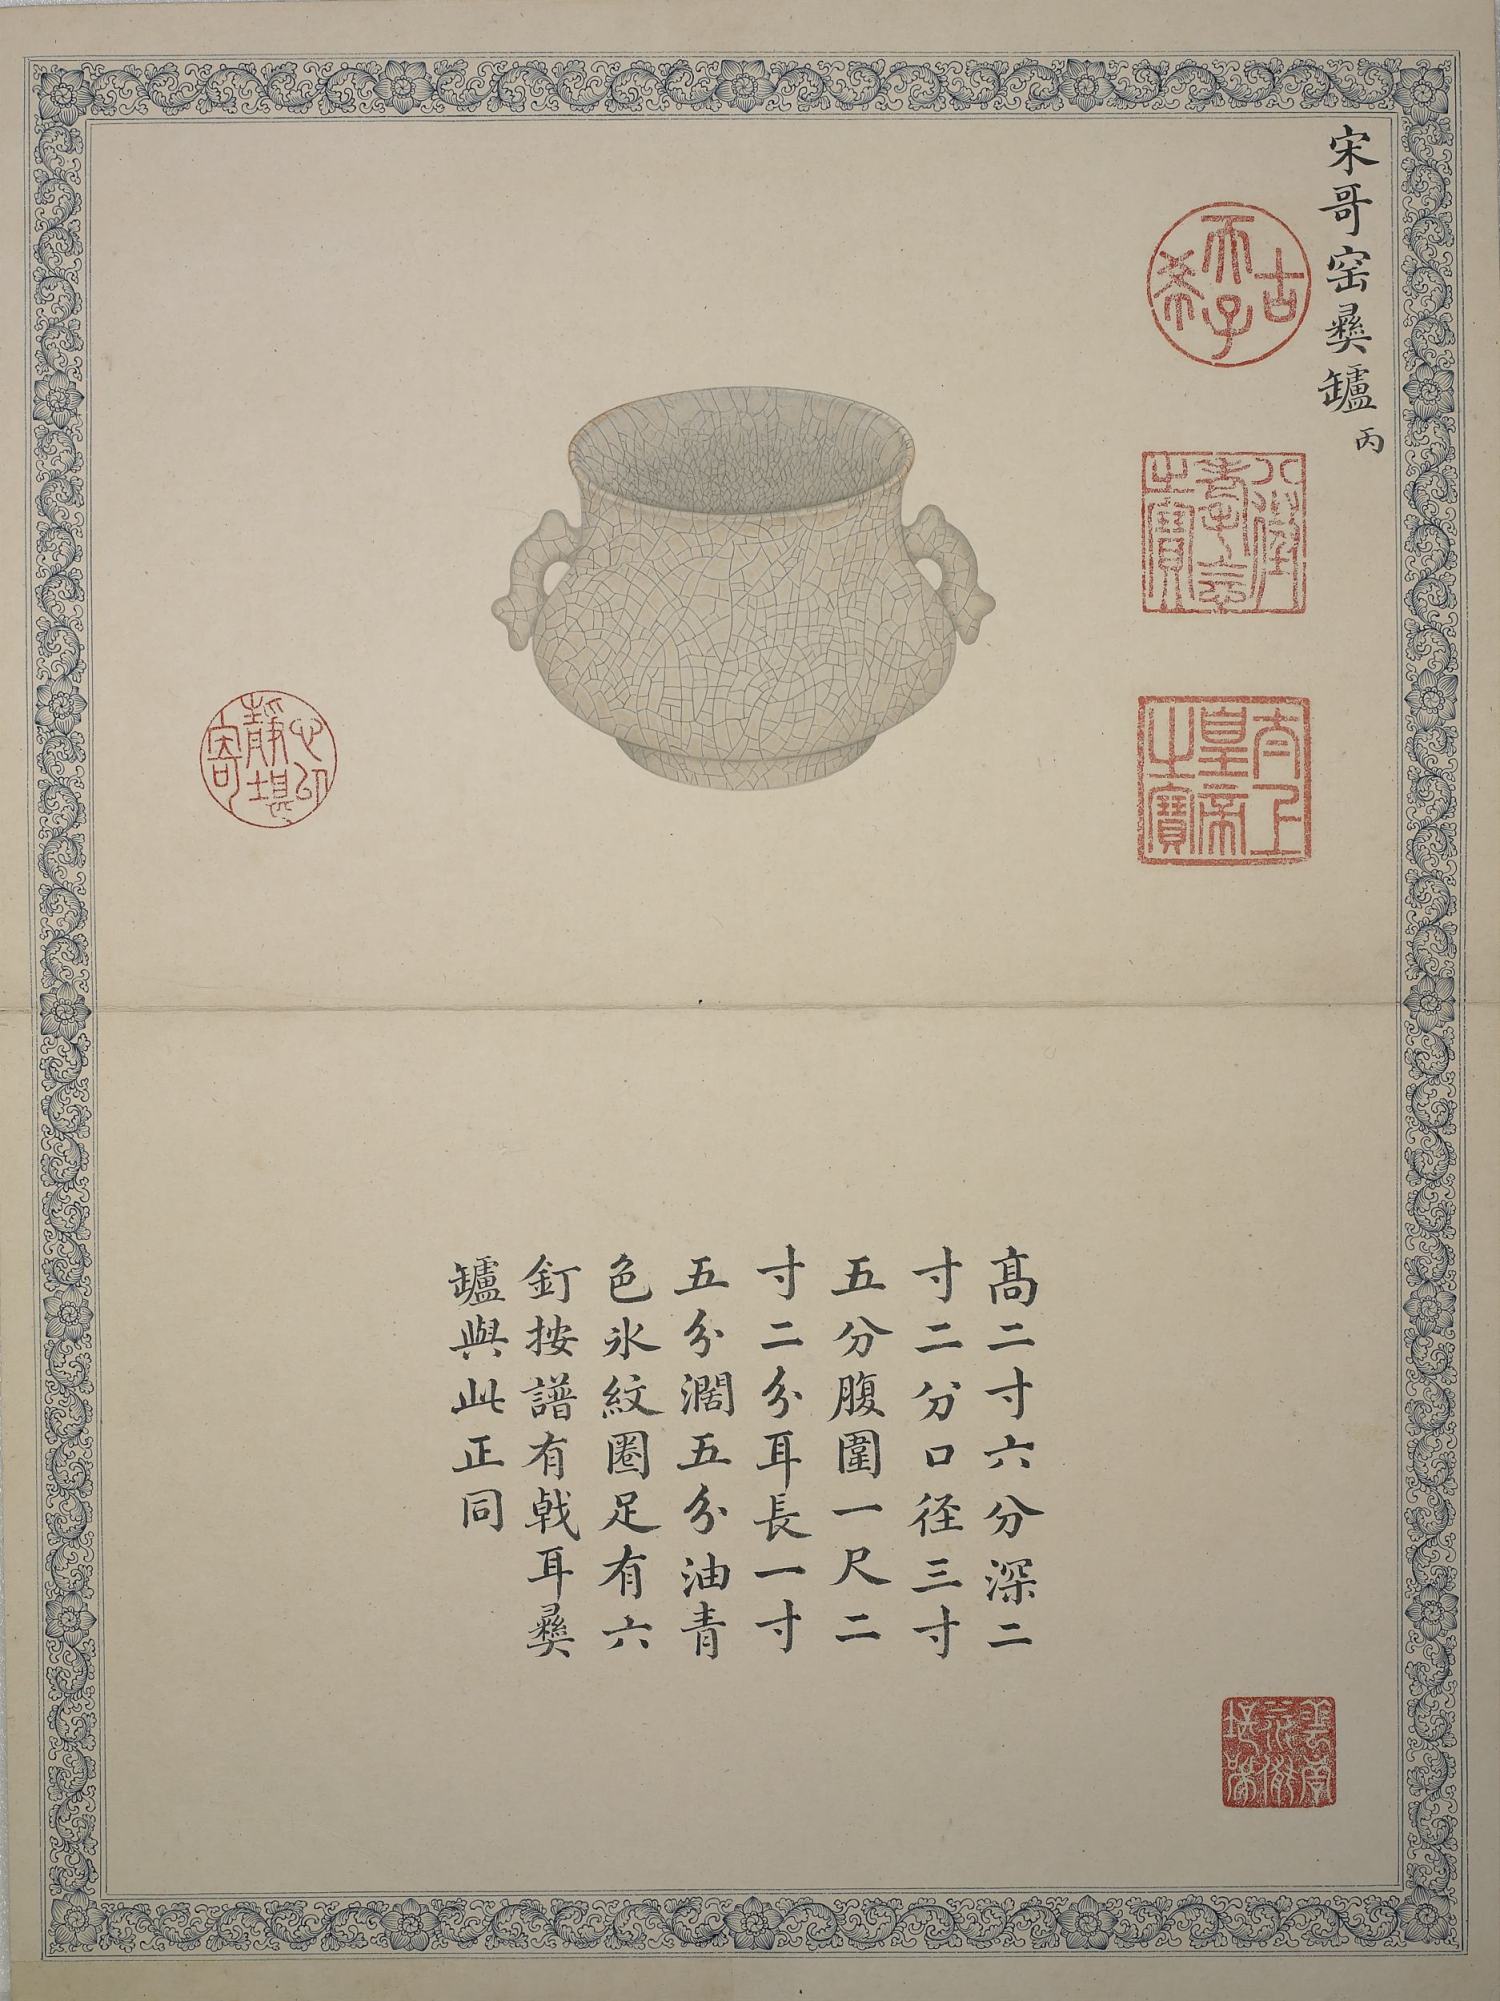 宋哥窑彝罏 丙
古希天子
八徵� 念之寶
太上皇帝之寶
靜寄
高二寸六分深二
寸二分口径三寸
五分腹圍一尺二
寸二分耳長一寸
五分濶五分油青
色氷紋圏足有六
釘按譜有戟耳彝
罏與此正同